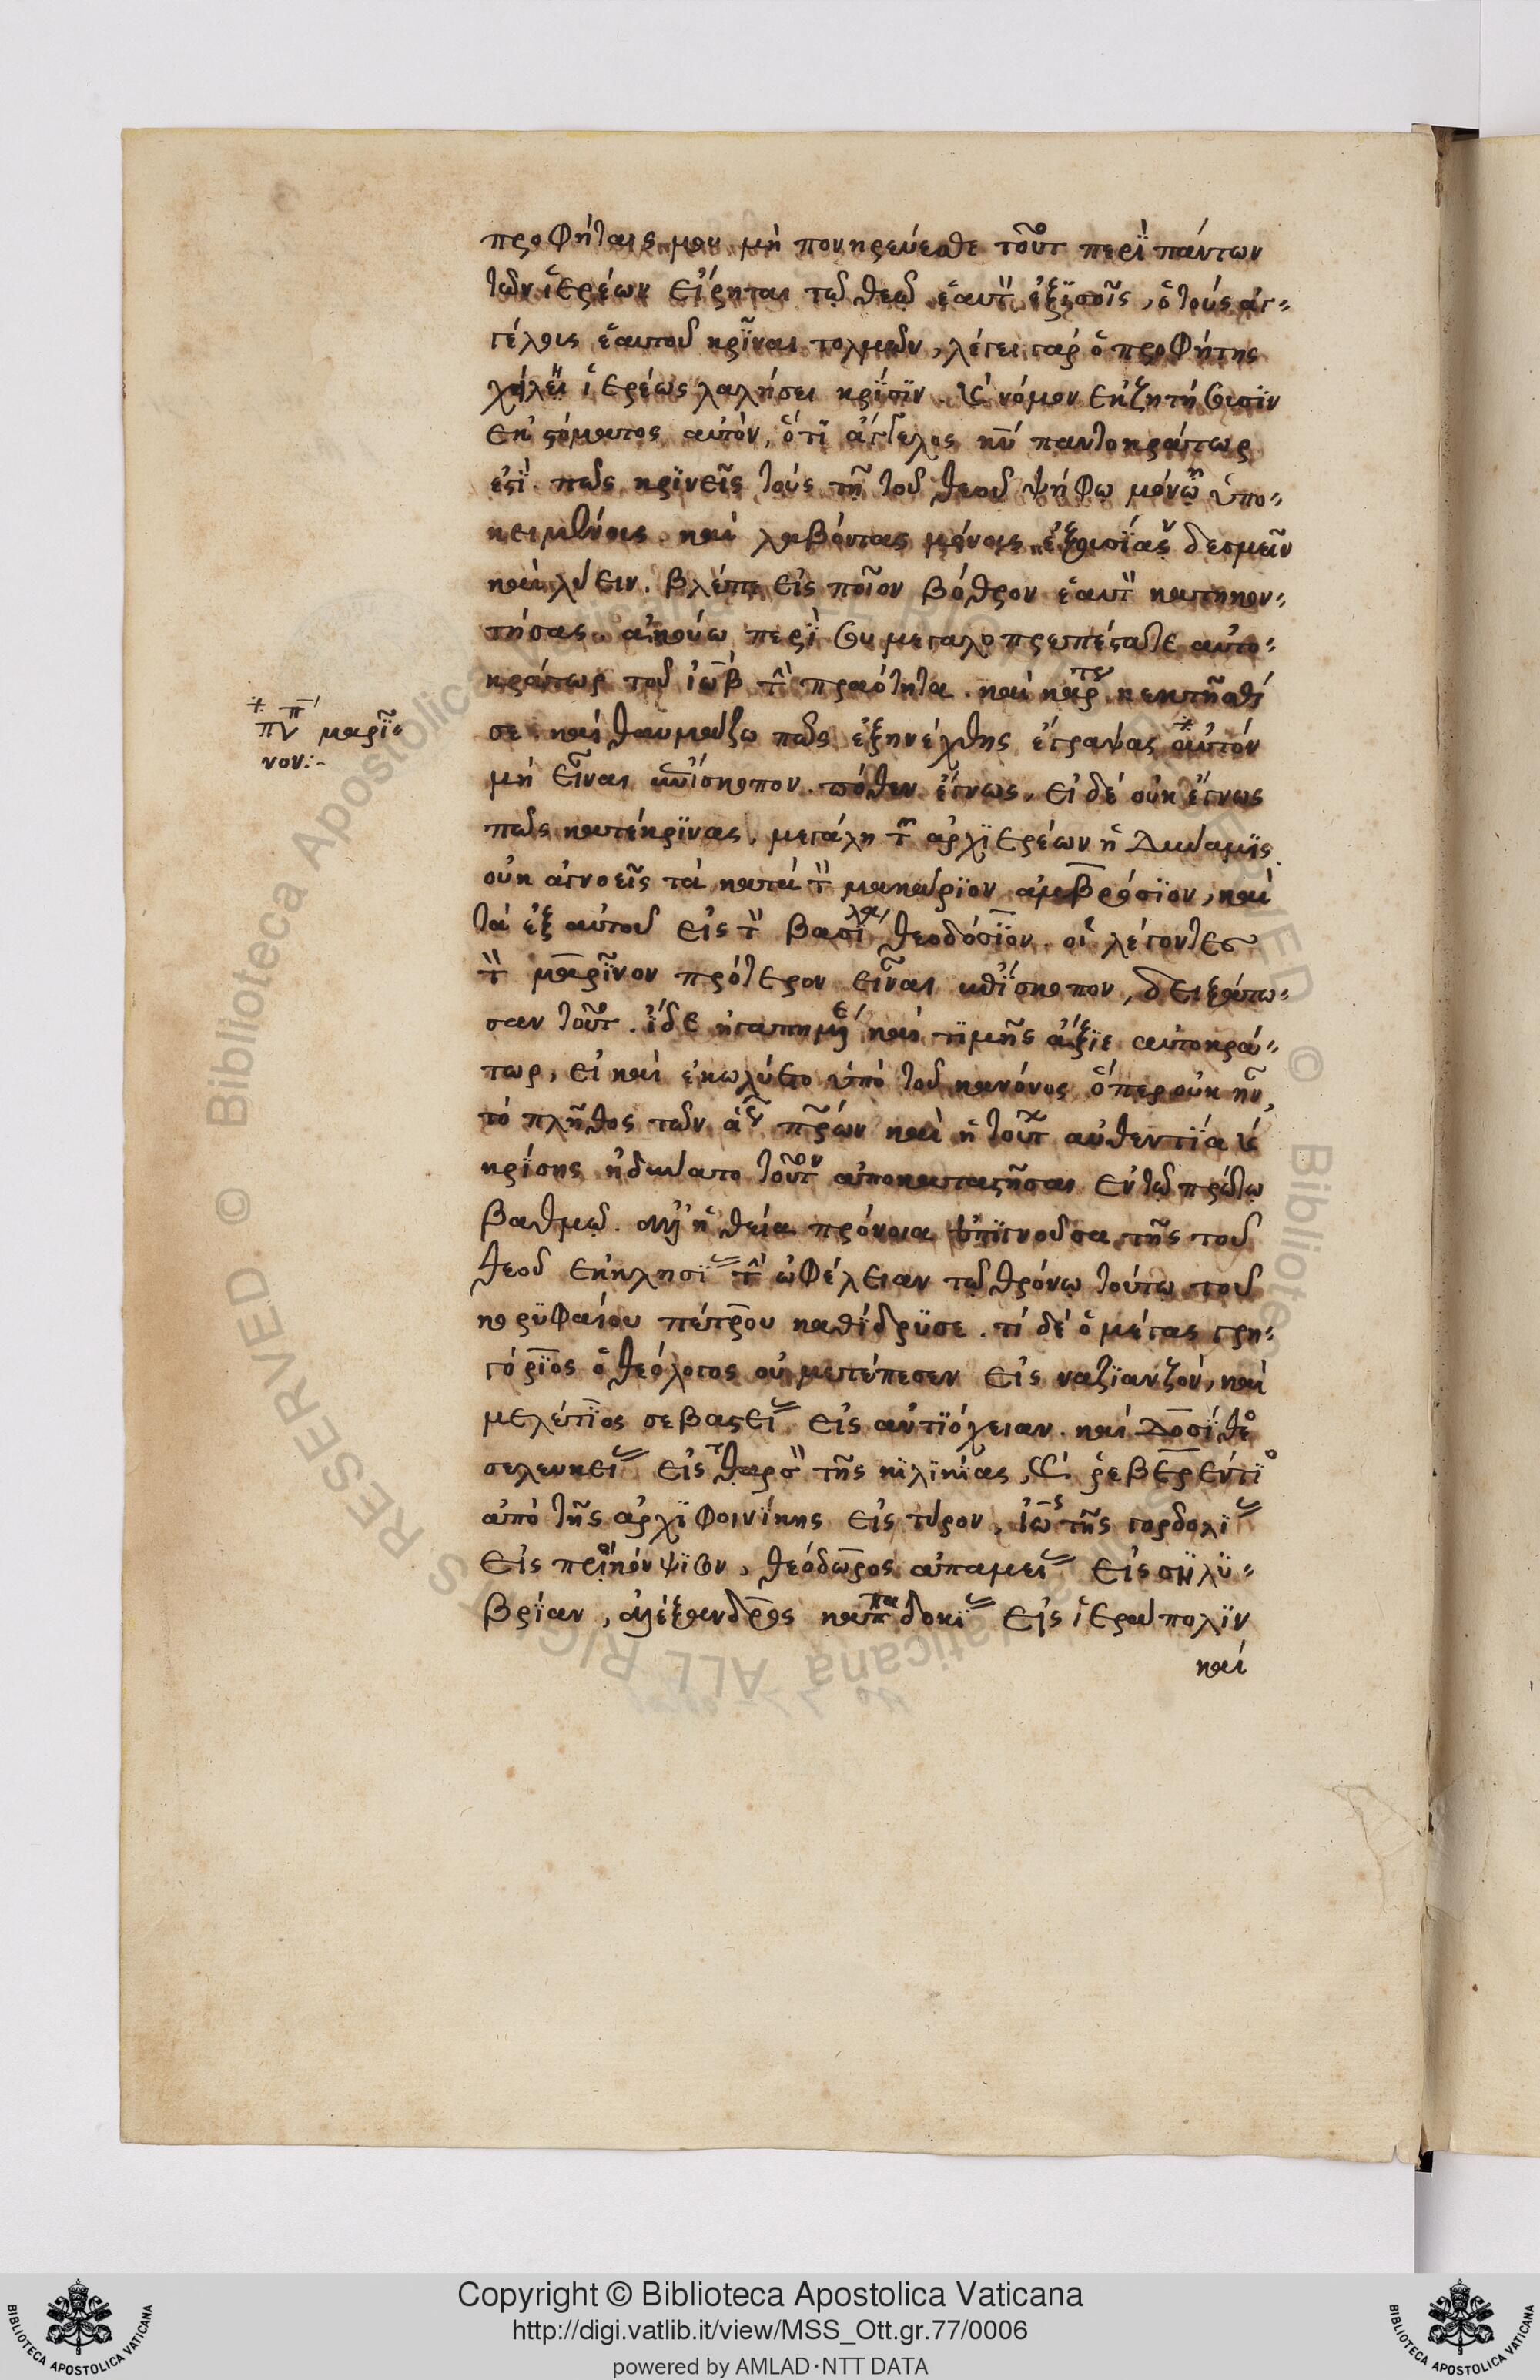 προφήταις μου μὴ πονηρεύεσθε τοῦτο περὶ πάντων
τῶν ἱερέων εἴρηται τῷ θεῷ ἑαυτὸν ἐξϊσοῖς, ὁ τοὺς ἀγ-
γέλους ἑαυτοῦ κρῖναι τολμῶν, λέγει γὰρ ὁ προφήτης
χείλη ἱερέως λαλήσει κρίσιν. καὶ νόμον ἐκζητήσουσιν
ἐκ στόματος αὐτῶν, ὅτι ἄγγελος κυ παντοκράτωρ
ἐστί. πῶς κρινεῖς τοὺς τῇ τοῦ θεοῦ ψήφῳ μόνῃ ὑπο-
κειμένους. καὶ λαβόντας μόνους ἐξουσίαν δεσμεῖν
καὶ λύειν. βλέπε εἰς ποῖον βόθρον ἑαυτὸν κατηκον-
τήσας. ἀκούω περὶ σου μεγαλοπρεπέστατε αὐτο-
κράτωρ τοῦ ἰὼβ τὴν πραότητα. καὶ κεκτῆσθαί
σε καὶ θαυμάζω πῶς ἐξηνέχθης ἔγραψας αὐτόν
μὴ εἶναι ἐπίσκοπον. πόθεν ἔγνως. εἰ δὲ οὐκ ἔγνως
πῶς κατέκρινας. μεγάλη τῶν ἀρχϊερέων ἡ δύναμις
οὐκ ἀγνοεῖς τὰ κατὰ τὸν μακάριον ἀμβρόσιον, καὶ
τὰ ἐξ αὐτοῦ εἰς τὸν βασιλέα θεοδόσιον. οἱ λέγοντες
τὸν μαρῖνον πρότερον εἶναι ἐπίσκοπον, δειξάτω-
σαν τοῦτο. ἴδε ἠγαπημένε καὶ τιμῆς ἄξιε αὐτοκρά-
τωρ, εἰ καὶ ἐκωλύετο ὑπὸ τοῦ κανόνος ὅπερ οὐκ ἦν,
τὸ πλῆθος τῶν ἁγίων πρων καὶ ἡ τούτων αὐθεντία καὶ
κρίσης ἠδύνατο τοῦτον ἀποκαταστῆσαι ἐν τῷ πρώτῳ
βαθμῷ. ἀλλ' ἡ θεία πρόνοια ἐπιγνοῦσα τῆς τοῦ
θεοῦ ἐκκλησίας τὴν ὠφέλειαν τῷ θρόνῳ τούτῳ τοῦ
κορυφαίου πέτρου καθίδρυσε. τί δὲ ὁ μέγας γρη-
γόριος ὁ θεόλογος οὐ μετέπεσεν εἰς ναζιανζόν, καὶ
μελέτιος σεβαστείας εἰς ἀντιόχειαν. καὶ δοσίθεος
σελευκείας εἰς ταρσὸν τῆς κιλικίας, καὶ ῥεβερέντιος
ἀπὸ τῆς ἀρχϊφοινίκης εἰς τύρον, ἰω τῆς γορδολίας
εἰς προικόνψισον, θεόδωρος ἀπαμείας εἰς σηλυ-
βρίαν, ἀλέξανδρος καππαδοκίας εἰς ἱεράπολιν
καί
μαρῖ-
νον:-
Copyright © Biblioteca Apostolica Vaticana
http://digi.vatlib.it/view/MSS_Ott.gr.77/0006
powered by AMLAD·NTT DATA